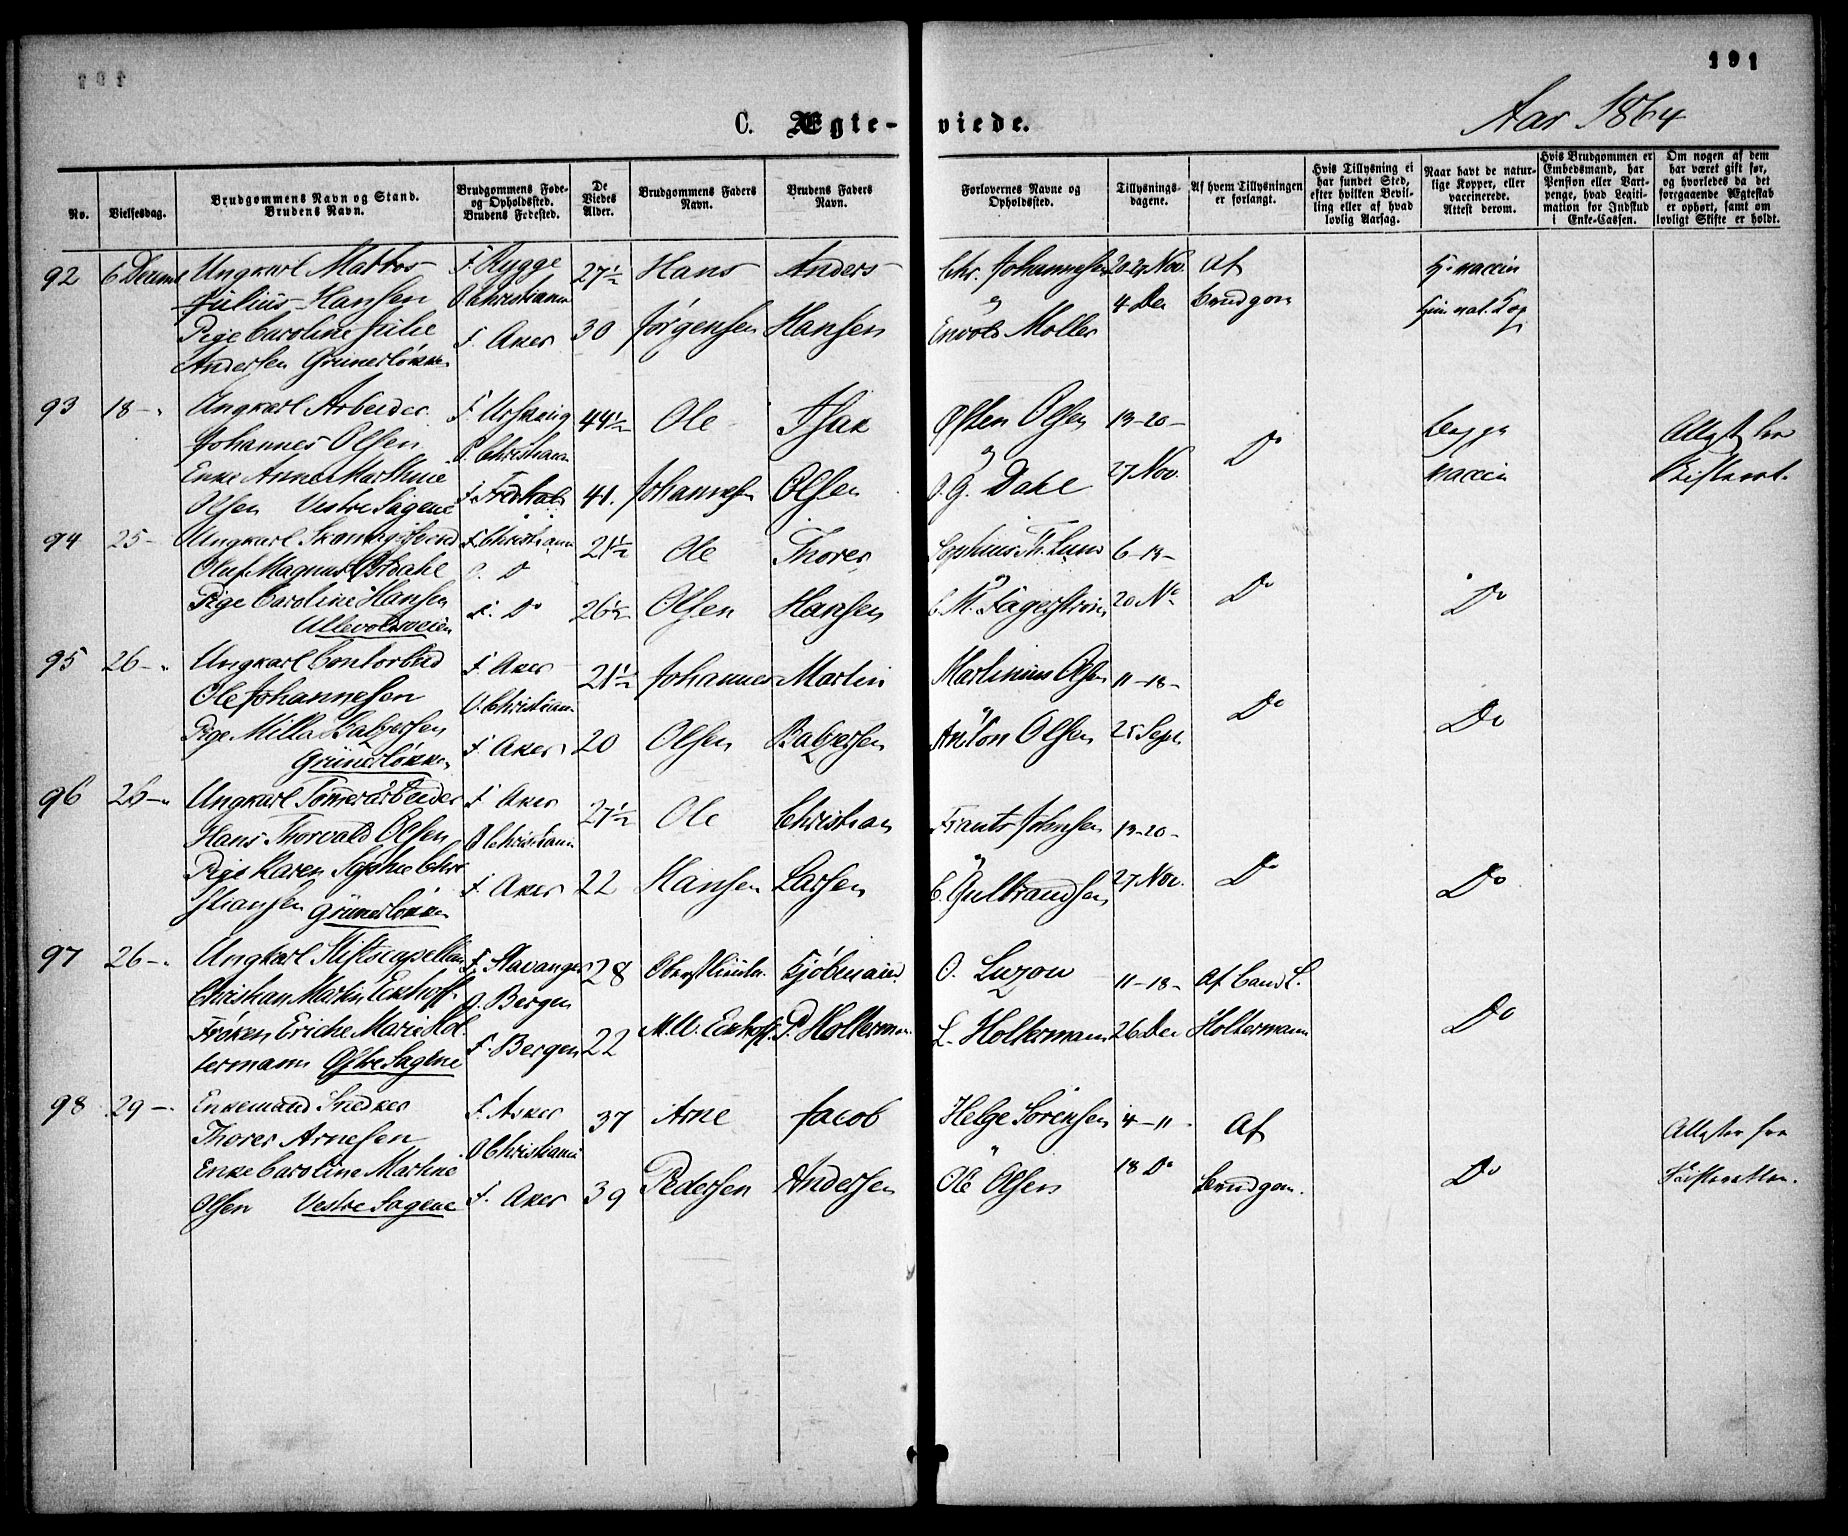 191
C. Ægte-viede.
Aar 1864
No.
Vielsesdag.
Brudgommens Navn og Stand.
Brudens Navn.
Brudgommens Føde-
og Opholdssted.
Brudens Fødested.
De
Viedes
Alder.
Brudgommens Faders
Navn.
Brudens Faders
Navn.
Forlovernes Navne og
Opholdssted.
Tillysnings-
dagene.
Af hvem Tillysningen
er forlangt.
Hvis Tillysning ei
har fundet Sted,
efter hvilken Bevil-
ling eller af hvad
lovlig Aarsag.
Naar havt de natur-
lige Kopper, eller
vaccinerede.
Attest derom.
Hvis Brudgommen er
Embedsmand, har
Pension eller Vart-
penge, hvad Legiti-
mation for Indskud
i Enke-Cassen.
Om nogen af dem
har været gift før,
og hvorledes da det
foregaaende Ægteskab
er ophørt, samt om
lovligt Skifte er holdt.
92 6 Decemb Ungkarl F. Rygge 27½ Hans Anders Chr. Johannesen 20-27 Nov. Af vaccin
Julius Hansen O. Christiania 4 Dec Brudgom
Pige Caroline Julie F. Aker 30 Jørgensen Hansen Møller
Andersen Grünerløkken
93 18 Ungkarl Arbeider F. Urskoug 44½ Ole Isak Østen Olsen 13-20- begge
Johannes Olsen O. Christiania og D° Attest fra
Enke Anne Marthine 41. Johannesen Olsen O. G. Dahl 27 Nov. vaccin Skifteret.
Olsen Vestre Sagene
94 25 Ungkarl F. Christiania 21½ Ole Thorer Sophus Th. Lund 6-13-
Oluf Magnus O. D°
Pige Caroline Hansen F. D° 26½ Olsen Hansen C. M. Fagerstrøm 20 No D° D°
Ullevoldsveien
95 26 Ungkarl Contorbud F. Aker 21½ Johannes Martin Martinius Olsen 11-18-
Ole Johannesen O. Christiania
Pige Milla Balzersen F. Aker 20 Olsen Balzersen Anton Olsen 25 Sept D° D°
Grünerløkken
96 26 Ungkarl Tømmerarbeider F. Aker 27½ Ole Christian Frants Johnsen 13-20-
Hans Thorvald Olsen O. Christiania
Pige Karen Sophie Chri F. Aker 22 Hansen Larsen C. Gulbrandsen 27 Nov. D° D°
stiansen Grünerløkken
97 26 Ungkarl Stiftscapellan F. Stavanger 28 Oberstlieutn. Kjøbmand O. Luzow 11-18- Af Cand S.
Christian Martin Eckhoff O. Bergen
Frøken Ericke Marie Hol F. Bergen 22 M. W. Eckhoff P. Holterman L. Holtermann 26 Dec Holtermann D°
termann Østre Sagene
98 29 Enkemand Snedker F. Asker 37 Arne Jacob Helge Sørensen 4-11 Af
Thorer Arnesen O. Christiania Attester fra
Enke Caroline Martine F. Aker 39 Pedersen Andersen Ole Olsen 18 D° Brudgom. D° Skifteretten.
Olsen Vestre Sagene